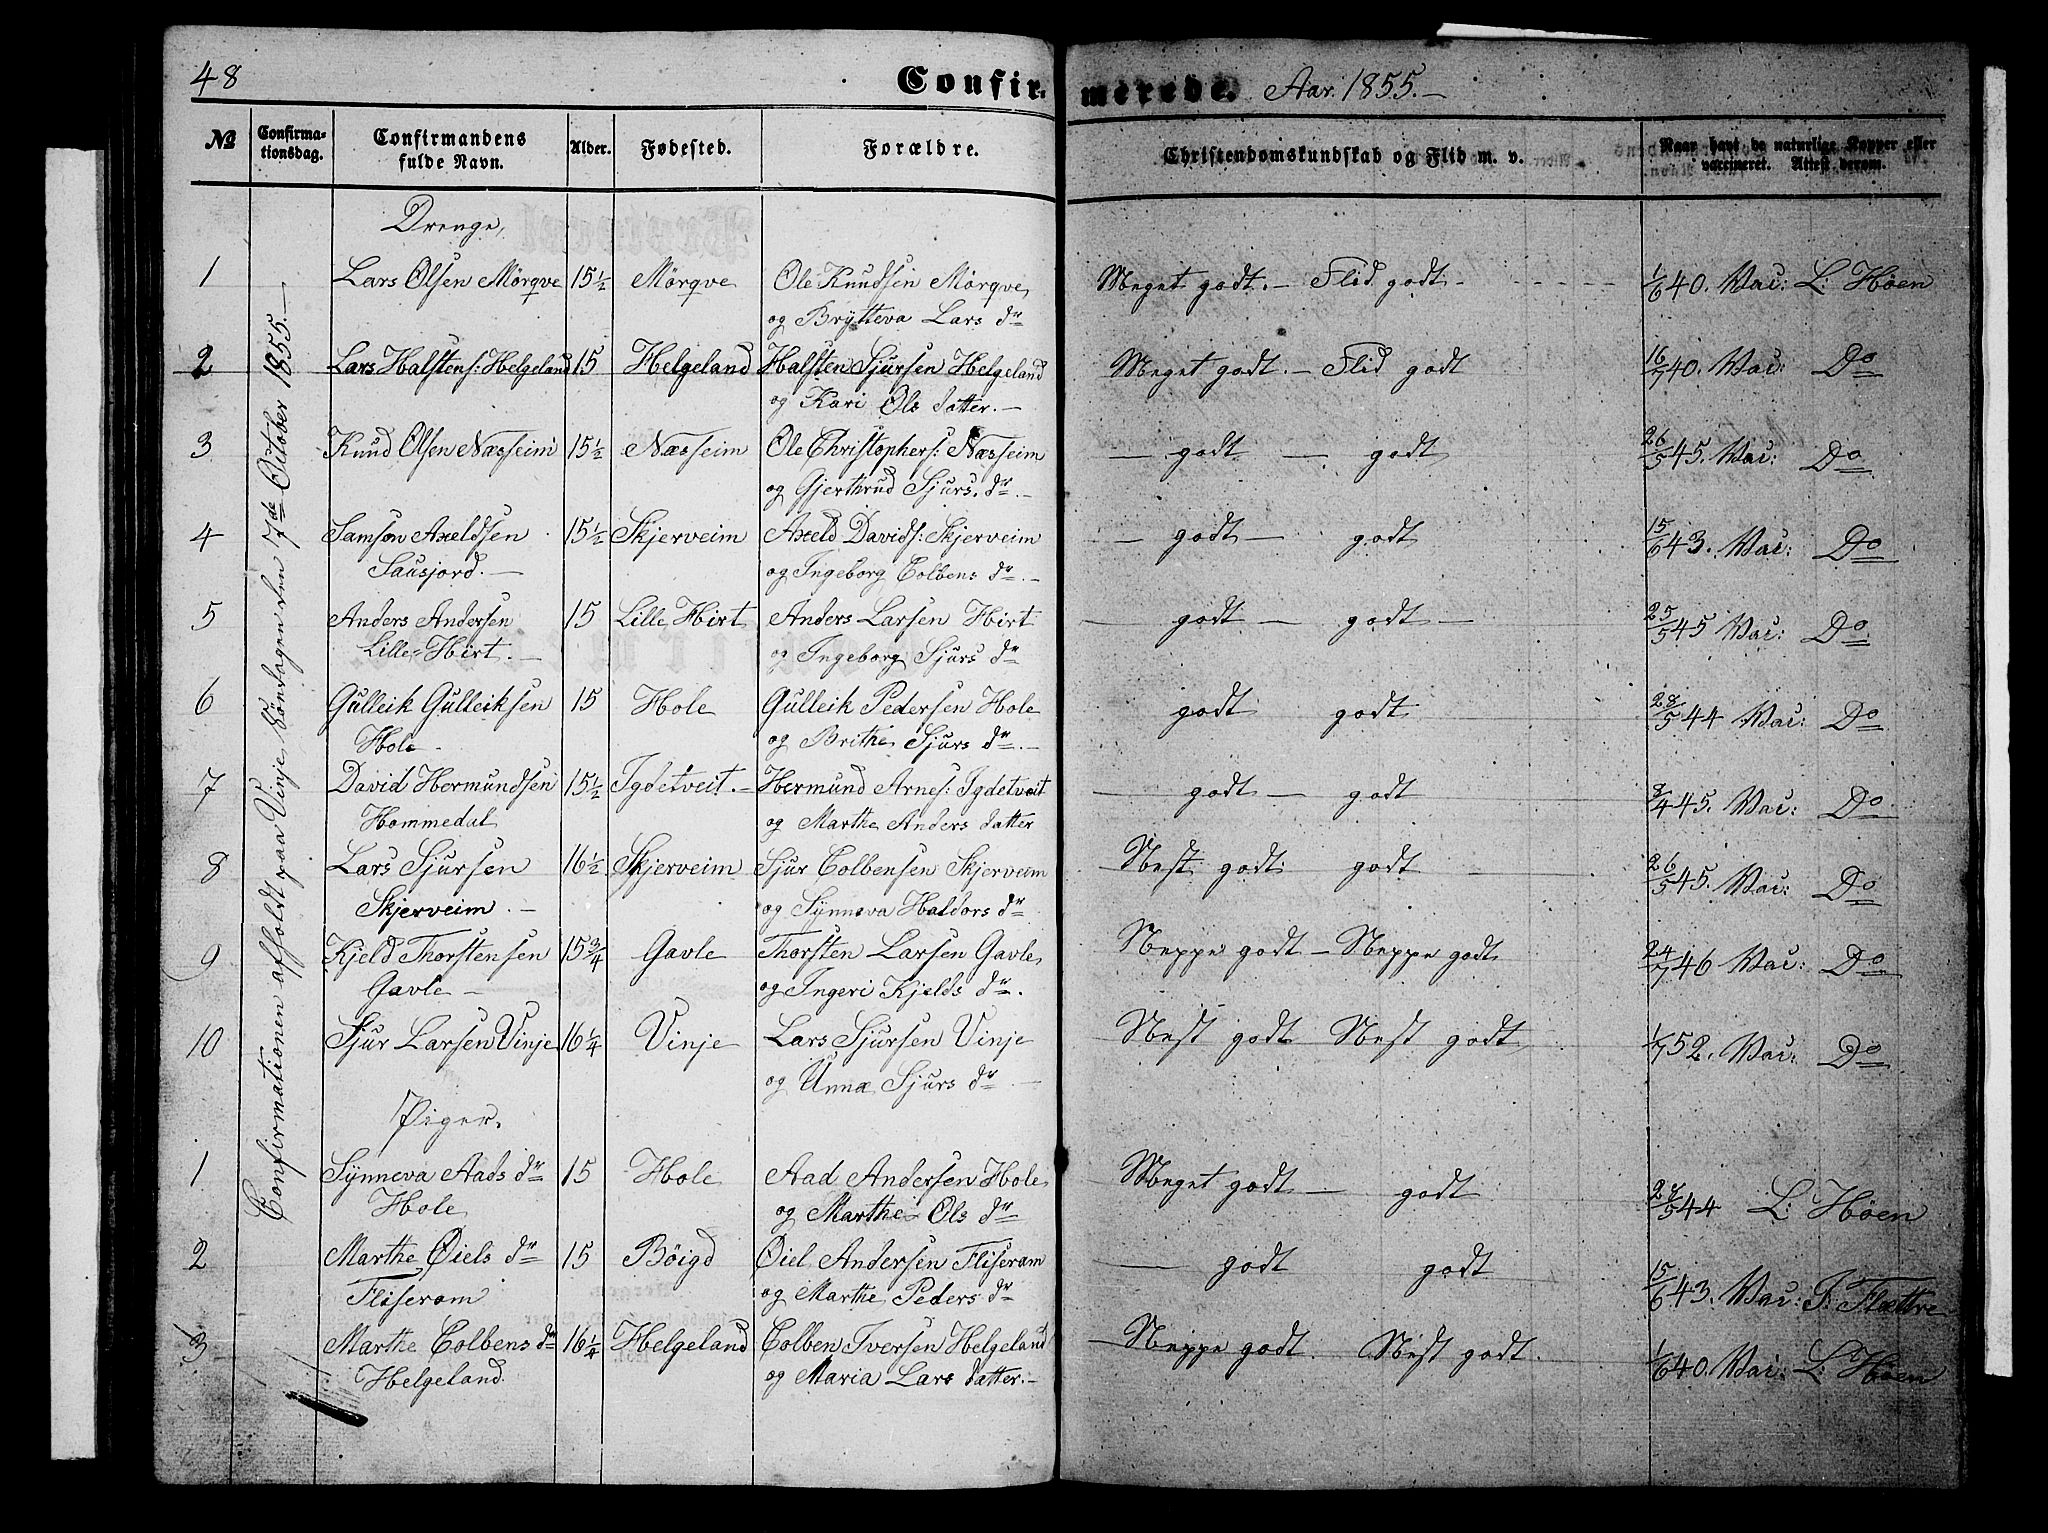 48
Confirmerede. Aar 1855.-
No Confirmationsdag. Confirmandens fulde Navn. Alder. Fødested. Forældre. Christendomskundskab og Flid m. v. Naar havt de naturlige Kopper eller vaccineret. Attest derom.
Confirmationen afholdt paa Vinje Söndagen den 7de October 1855.-
Drenge,
1 Lars Olsen Mörqve 15½ Mörqve Ole Knudsen Mörqve Meget godt.- Flid godt- 1/6 40. Vac: L: Höen
og Brytteva Lars dr
2 Lars Halstens: Helgeland 15 Helgeland Halsten Sjursen Helgeland Meget godt.- Flid godt 16/7 40. Vac: Do
og Kari Ols datter.-
3 Knud Olsen Næsseim 15½ Næsseim Ole Christophers: Næsseim - godt - godt 26/5 45. Vac: Do
og Gjerthrud Sjurs. dr.-
4 Samson Axeldsen 15½ Skjerveim Axeld Davids: Skjerveim - godt - godt 15/6 43. Vac: Do
Sausjord.- og Ingeborg Colbens dr.-
5 Anders Andersen 15 Lille Hirt Anders Larsen Hirt - godt - godt - 25/5 45 Vac: Do
Lille-Hirt.- og Ingeborg Sjurs dr
6 Gulleik Gulleiksen 15 Hole Gulleik Pedersen Hole godt godt 28/5 44 Vac: Do
Hole og Brithe Sjurs dr.-
7 David Hermundsen 15½ Igdetveit.- Hermund Arnes: Igdetveit - godt - godt 8/4 45. Vac: Do
Hommedal og Marthe Anders datter
8 Lars Sjursen 16½ Skjerveim Sjur Colbensen Skjerveim Nest godt godt 26/5 45. Vac: Do
Skjerveim.- og Synneva Haldors dr
9 Kjeld Thorstensen 15¾ Gavle Thorsten Larsen Gavle Neppe godt - Neppe godt 24/7 46 Vac: Do
Gavle - og Ingeri Kjelds dr.
10 Sjur Larsen Vinje 16¼ Vinje Lars Sjursen Vinje Nest godt Nest godt 1/7 52. Vac: Do
og Unnæ Sjurs dr.-
Piger.
1 Synneva Aads dr 15 Hole Aad Andersen Hole Meget godt - godt 28/5 44 L: Höen
Hole og Marthe Ols dr
2 Marthe Öiels dr 15 Böigd Öiel Andersen Fliseram - godt godt 15/6 43. Vac: J: Flættre
Fliseram og Marthe Peders dr
3 Marthe Colbens dr 16¼ Helgeland Colben Iversen Helgeland Neppe godt. Nest godt. 1/6 40. Vac: L: Höen
Helgeland. og Maria Lars datter.-